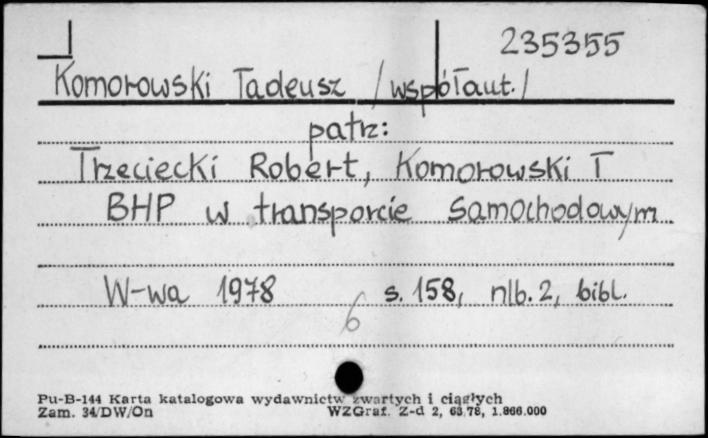 235355
Komorowski Tadeusz /współaut./
patrz:
Trzeciecki Robert, Komorowski T
BHP w transporcie samochodowym
W-wa 1978 s. 158, nlb. 2, bibl.
6
Pu-B-144 Karta katalogowa wydawnictw zwartych i ciągłych
Zam. 34/DW/On WZGraf. Z-d 2, 63/78, 1.866.000